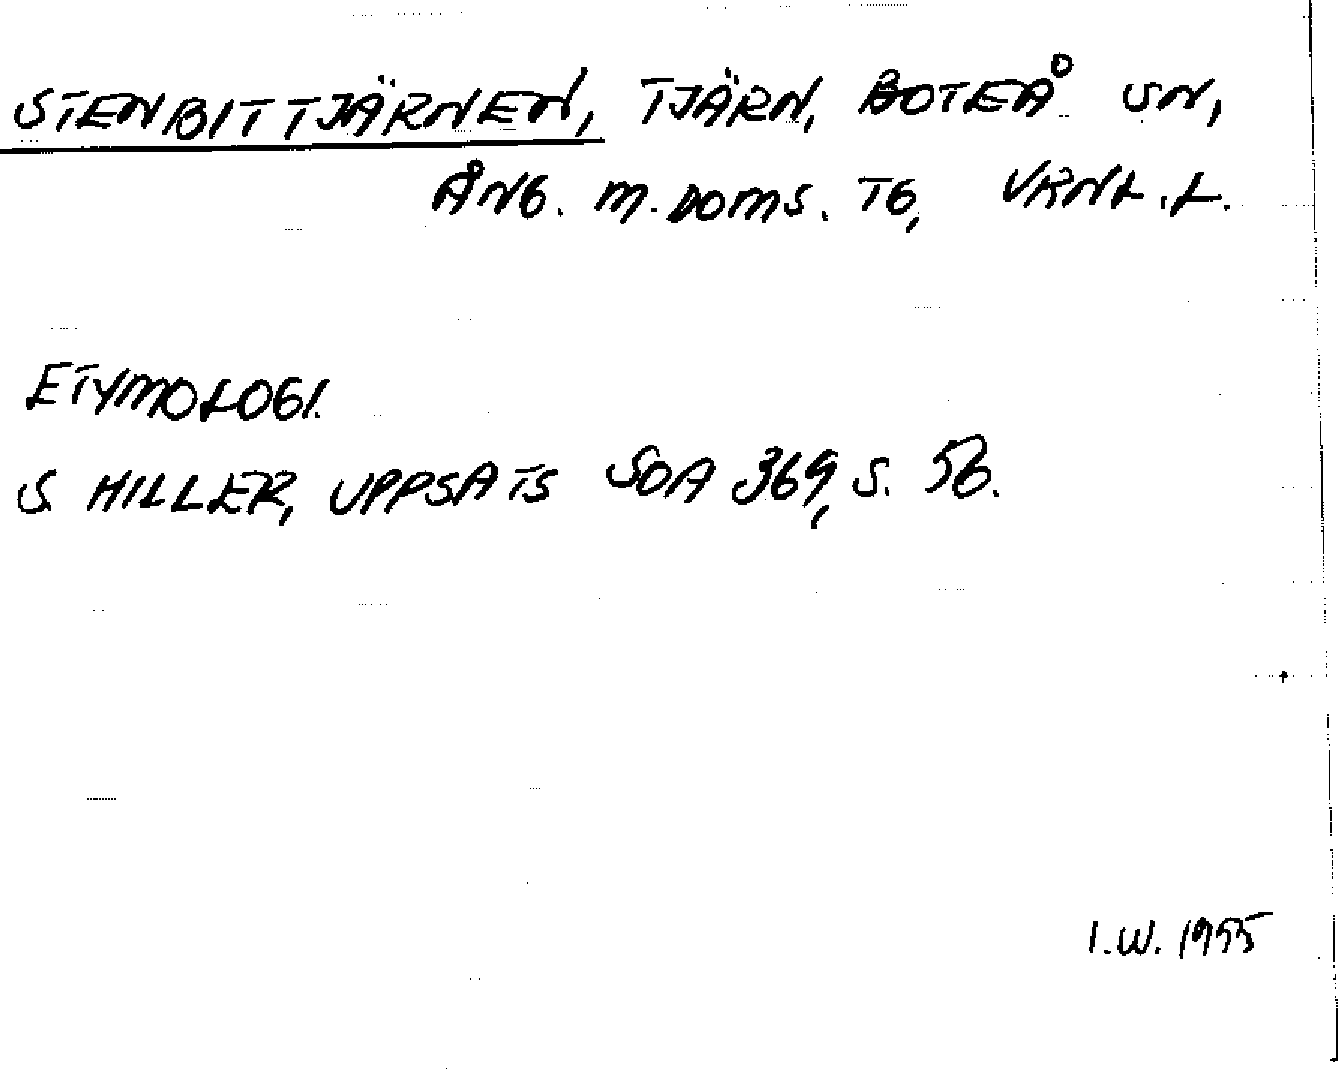 STENBITTJÄRNEN, TJÄRN, BOTEÅ SN,
ÅNG. M. DOMS. TG, VRNL.L.
ETYMOLOGI.
S. HILLER, UPPSATS SOA 369, S. 56.
I.W. 1955